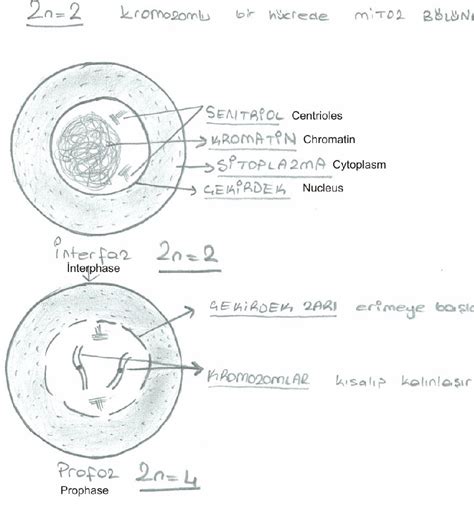 2n=2 kromozomlu bir hücrede mitoz
SENTRİOL Centrioles
KROMATİN Chromatin
SİTOPLAZMA Cytoplasm
ÇEKİRDEK Nucleus
İnterfaz 2n=2
Interphase
ÇEKİRDEK ZARI erimeye
KROMOZOMLAR kısalıp kalınlaşır
Profaz 2n=4
Prophase